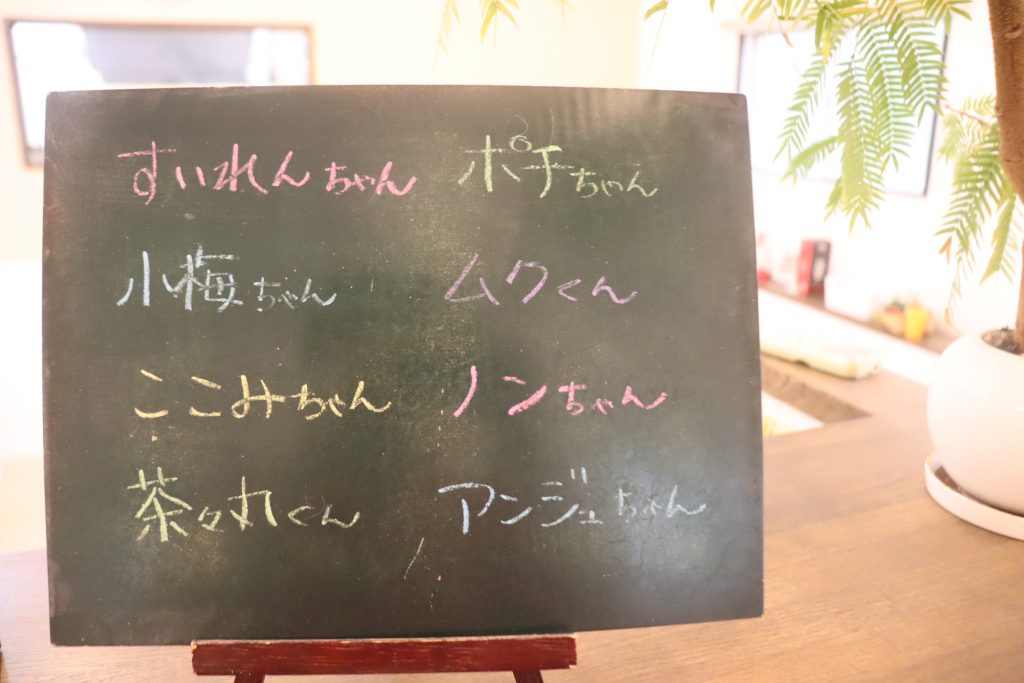 すいれんちゃん
ポチちゃん
小梅ちゃん
ムクくん
ここみちゃん
ノンちゃん
茶々丸くん
アンジュちゃん